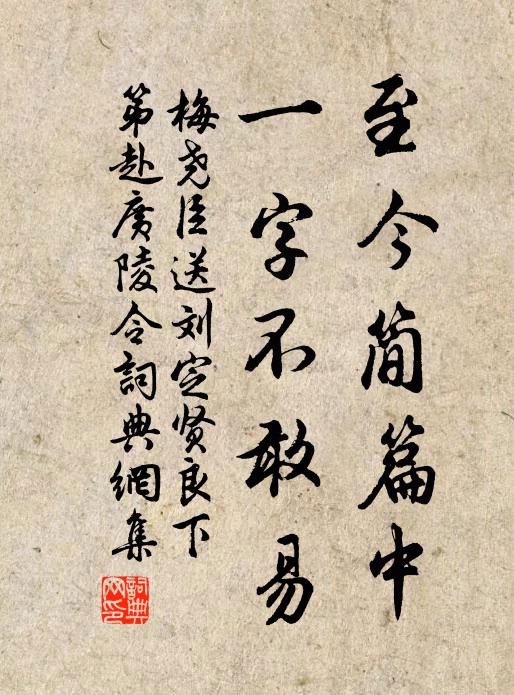 至今简篇中
一字不敢易
梅尧臣送刘定贤良下
第赴广陵令词典網集
詞典
网印